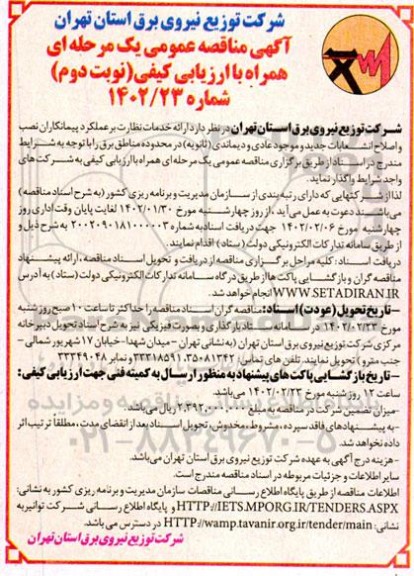 شرکت توزیع نیروی برق استان تهران
آگهی مناقصه عمومی یک مرحله ای
همراه با ارزیابی کیفی (نوبت دوم)
شماره ۱۴۰۲/۲۳
شرکت توزیع نیروی برق استان تهران در نظر دارد ارائه خدمات نظارت بر عملکرد پیمانکاران نصب
و اصلاح انشعابات جدید و موجود عادی و دیماندی (ثانویه) در محدوده مناطق برق را با توجه به شرایط
مندرج در اسناد از طریق برگزاری مناقصه عمومی یک مرحله ای همراه با ارزیابی کیفی به شرکت های
واجد شرایط واگذار نماید.
لذا از شرکتهایی که دارای رتبه بندی از سازمان مدیریت و برنامه ریزی کشور (به شرح اسناد مناقصه)
می باشند دعوت به عمل می آید، از روز چهارشنبه مورخ ۱۴۰۲/۰۱/۳۰ لغایت پایان وقت اداری روز
چهارشنبه مورخ ۱۴۰۲/۰۲/۰۶ جهت دریافت اسناد به شماره ۲۰۰۲۰۹۰۱۸۱۰۰۰۰۰۳ به شرح ذیل و
از طریق سامانه تدارکات الکترونیکی دولت (ستاد) اقدام نمایند.
دریافت اسناد: کلیه مراحل برگزاری مناقصه از دریافت و تحویل اسناد مناقصه، ارائه پیشنهاد
مناقصه گران و بازگشایی پاکت ها از طریق درگاه سامانه تدارکات الکترونیکی دولت (ستاد) به آدرس
WWW.SETADIRAN.IR انجام خواهد شد.
-تاریخ تحویل (عودت) اسناد: مناقصه گران اسناد مناقصه را حداکثر تا ساعت ۱۰ صبح روز شنبه
مورخ ۱۴۰۲/۰۲/۲۳ در سامانه ستاد بارگذاری و بصورت فیزیکی نیز به شرح اسناد تحویل دبیرخانه
مرکزی شرکت توزیع نیروی برق استان تهران (به نشانی تهران -میدان شهدا- خیابان ۱۷ شهریور شمالی -
جنب مترو) تحویل نمایند. تلفن های تماس: ۳۵۰۸۱۳۴۲، ۳۳۳۱۸۵۹۱ و نمابر ۳۳۳۴۹۰۴۸
-تاریخ بازگشایی پاکت های پیشنهاد به منظور ارسال به کمیته فنی جهت ارزیابی کیفی:
ساعت ۱۲ روز شنبه مورخ ۱۴۰۲/۰۲/۲۳ می باشد.
-میزان تضمین شرکت در مناقصه به مبلغ ریال می باشد.
-به پیشنهادهای فاقد سپرده، مشروط، مخدوش، تحویل اسناد بعد از انقضای مدت، مطلقا ترتیب اثر
داده نخواهد شد.
-هزینه درج آگهی به عهده شرکت توزیع نیروی برق استان تهران می باشد.
سایر اطلاعات و جزئیات مربوطه در اسناد مناقصه مندرج است.
اطلاعات مناقصه از طریق پایگاه اطلاع رسانی مناقصات سازمان مدیریت و برنامه ریزی کشور به نشانی:
HTTP://IETS.MPORG.IR/TENDERS.ASPX و پایگاه اطلاع رسانی شرکت توانیر به
نشانی: HTTP://wamp.tavanir.org.ir/tender/main در دسترس می باشد.
شرکت توزیع نیروی برق استان تهران
۰۲۱-۸۸۳۴۹۶۷۰-۵